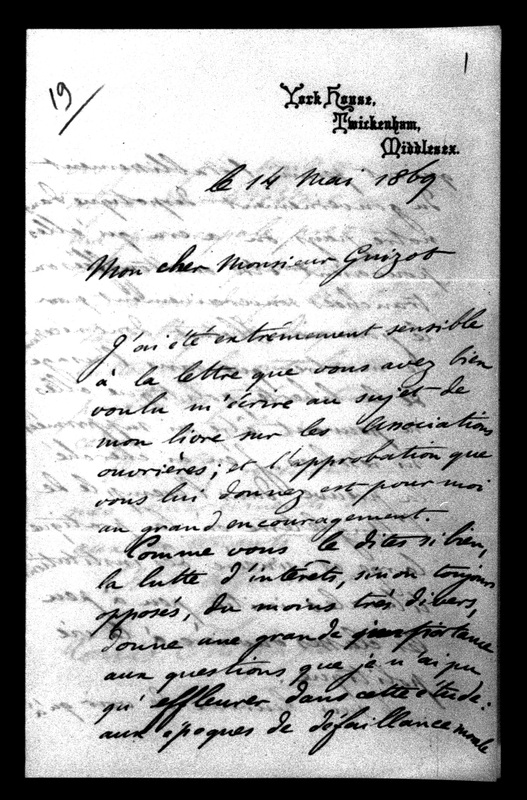 19/
1
York House,
Twickenham,
Middlesex.
le 14 mai 1869
Mon cher Monsieur Guizot
J'ai été extrêmement sensible
à la lettre que vous avez bien
voulu m'écrire au sujet de
mon livre sur les Associations
ouvrières; et l'approbation que
vous lui donnez est pour moi
un grand encouragement.
Comme vous le dites si bien,
la lutte d'intérêts, sinon toujours
opposés, du moins très divers,
donne une grande importance
aux questions que je n'ai pu
qu'effleurer dans cette étude:
aux époques de défaillance morale